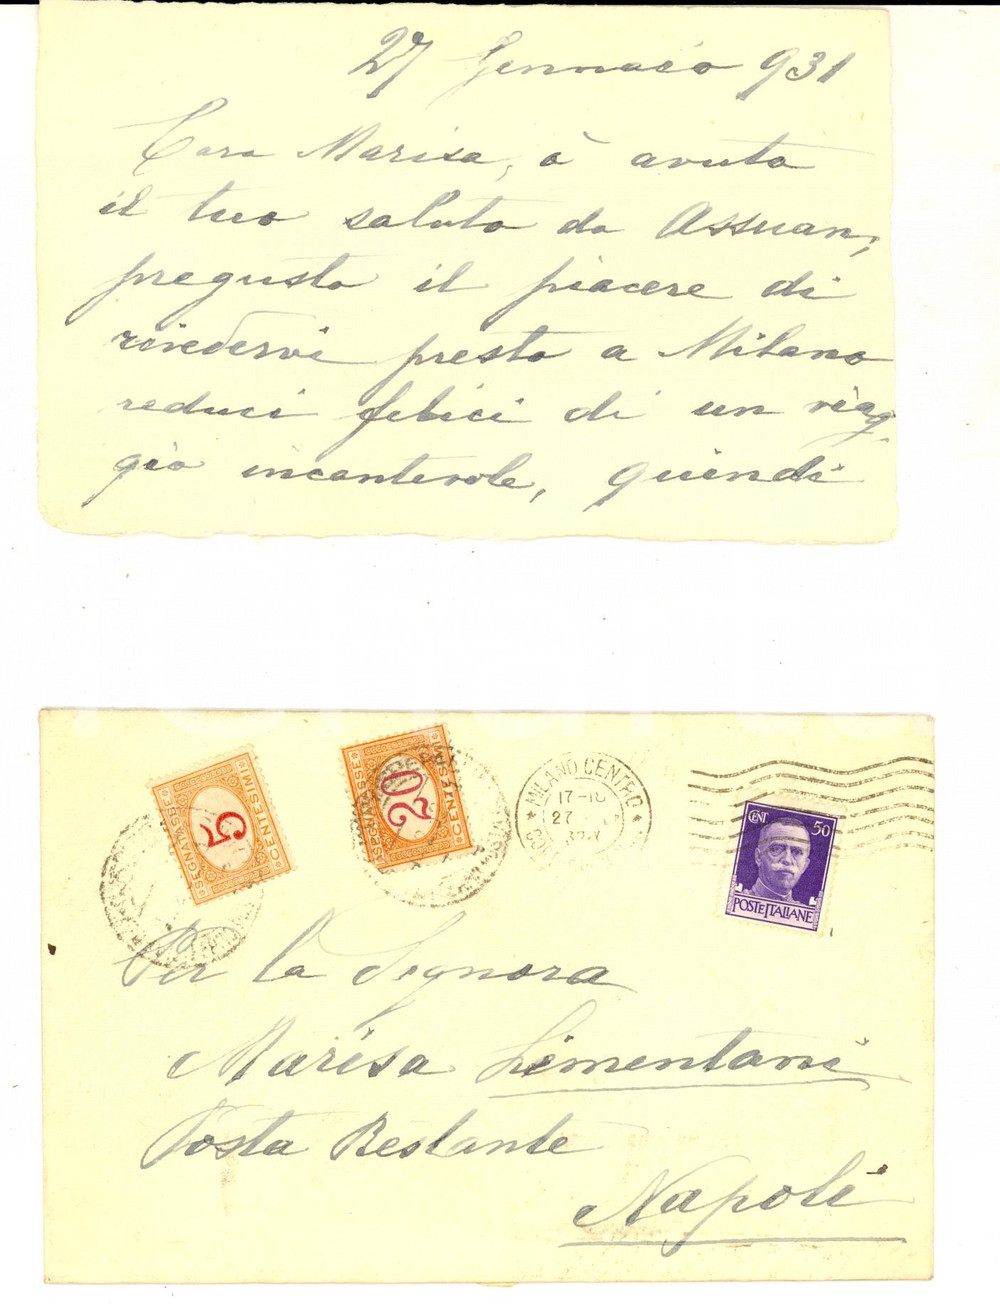 27 Gennaio 931
Cara Marisa, ò avuto
il tuo saluto da Assuan,
pregusto il piacere di
rivedervi presto a Milano
reduci felici di un viag
gio incantevole, quindi
SEGNATASSE
5
CENTESIMI
SEGNATASSE
20
CENTESIMI
MILANO CENTRO
17-18
27
CENT. 50
POSTE ITALIANE
Per la Signora
Marisa Limentani
Posta Restante
Napoli